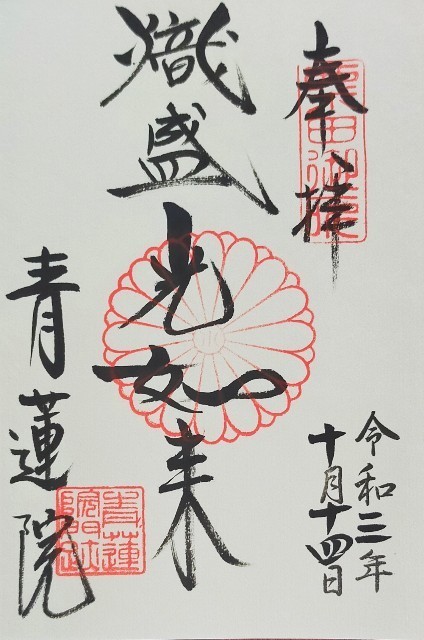 奉拝
令和三年
十月十四日
熾盛光如来
青蓮院
青蓮
院門跡
粟田御所